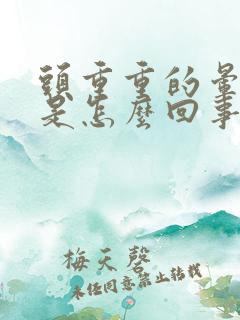 頭重重的暈
是怎麼回事
梅天磬
未经同意禁止转载